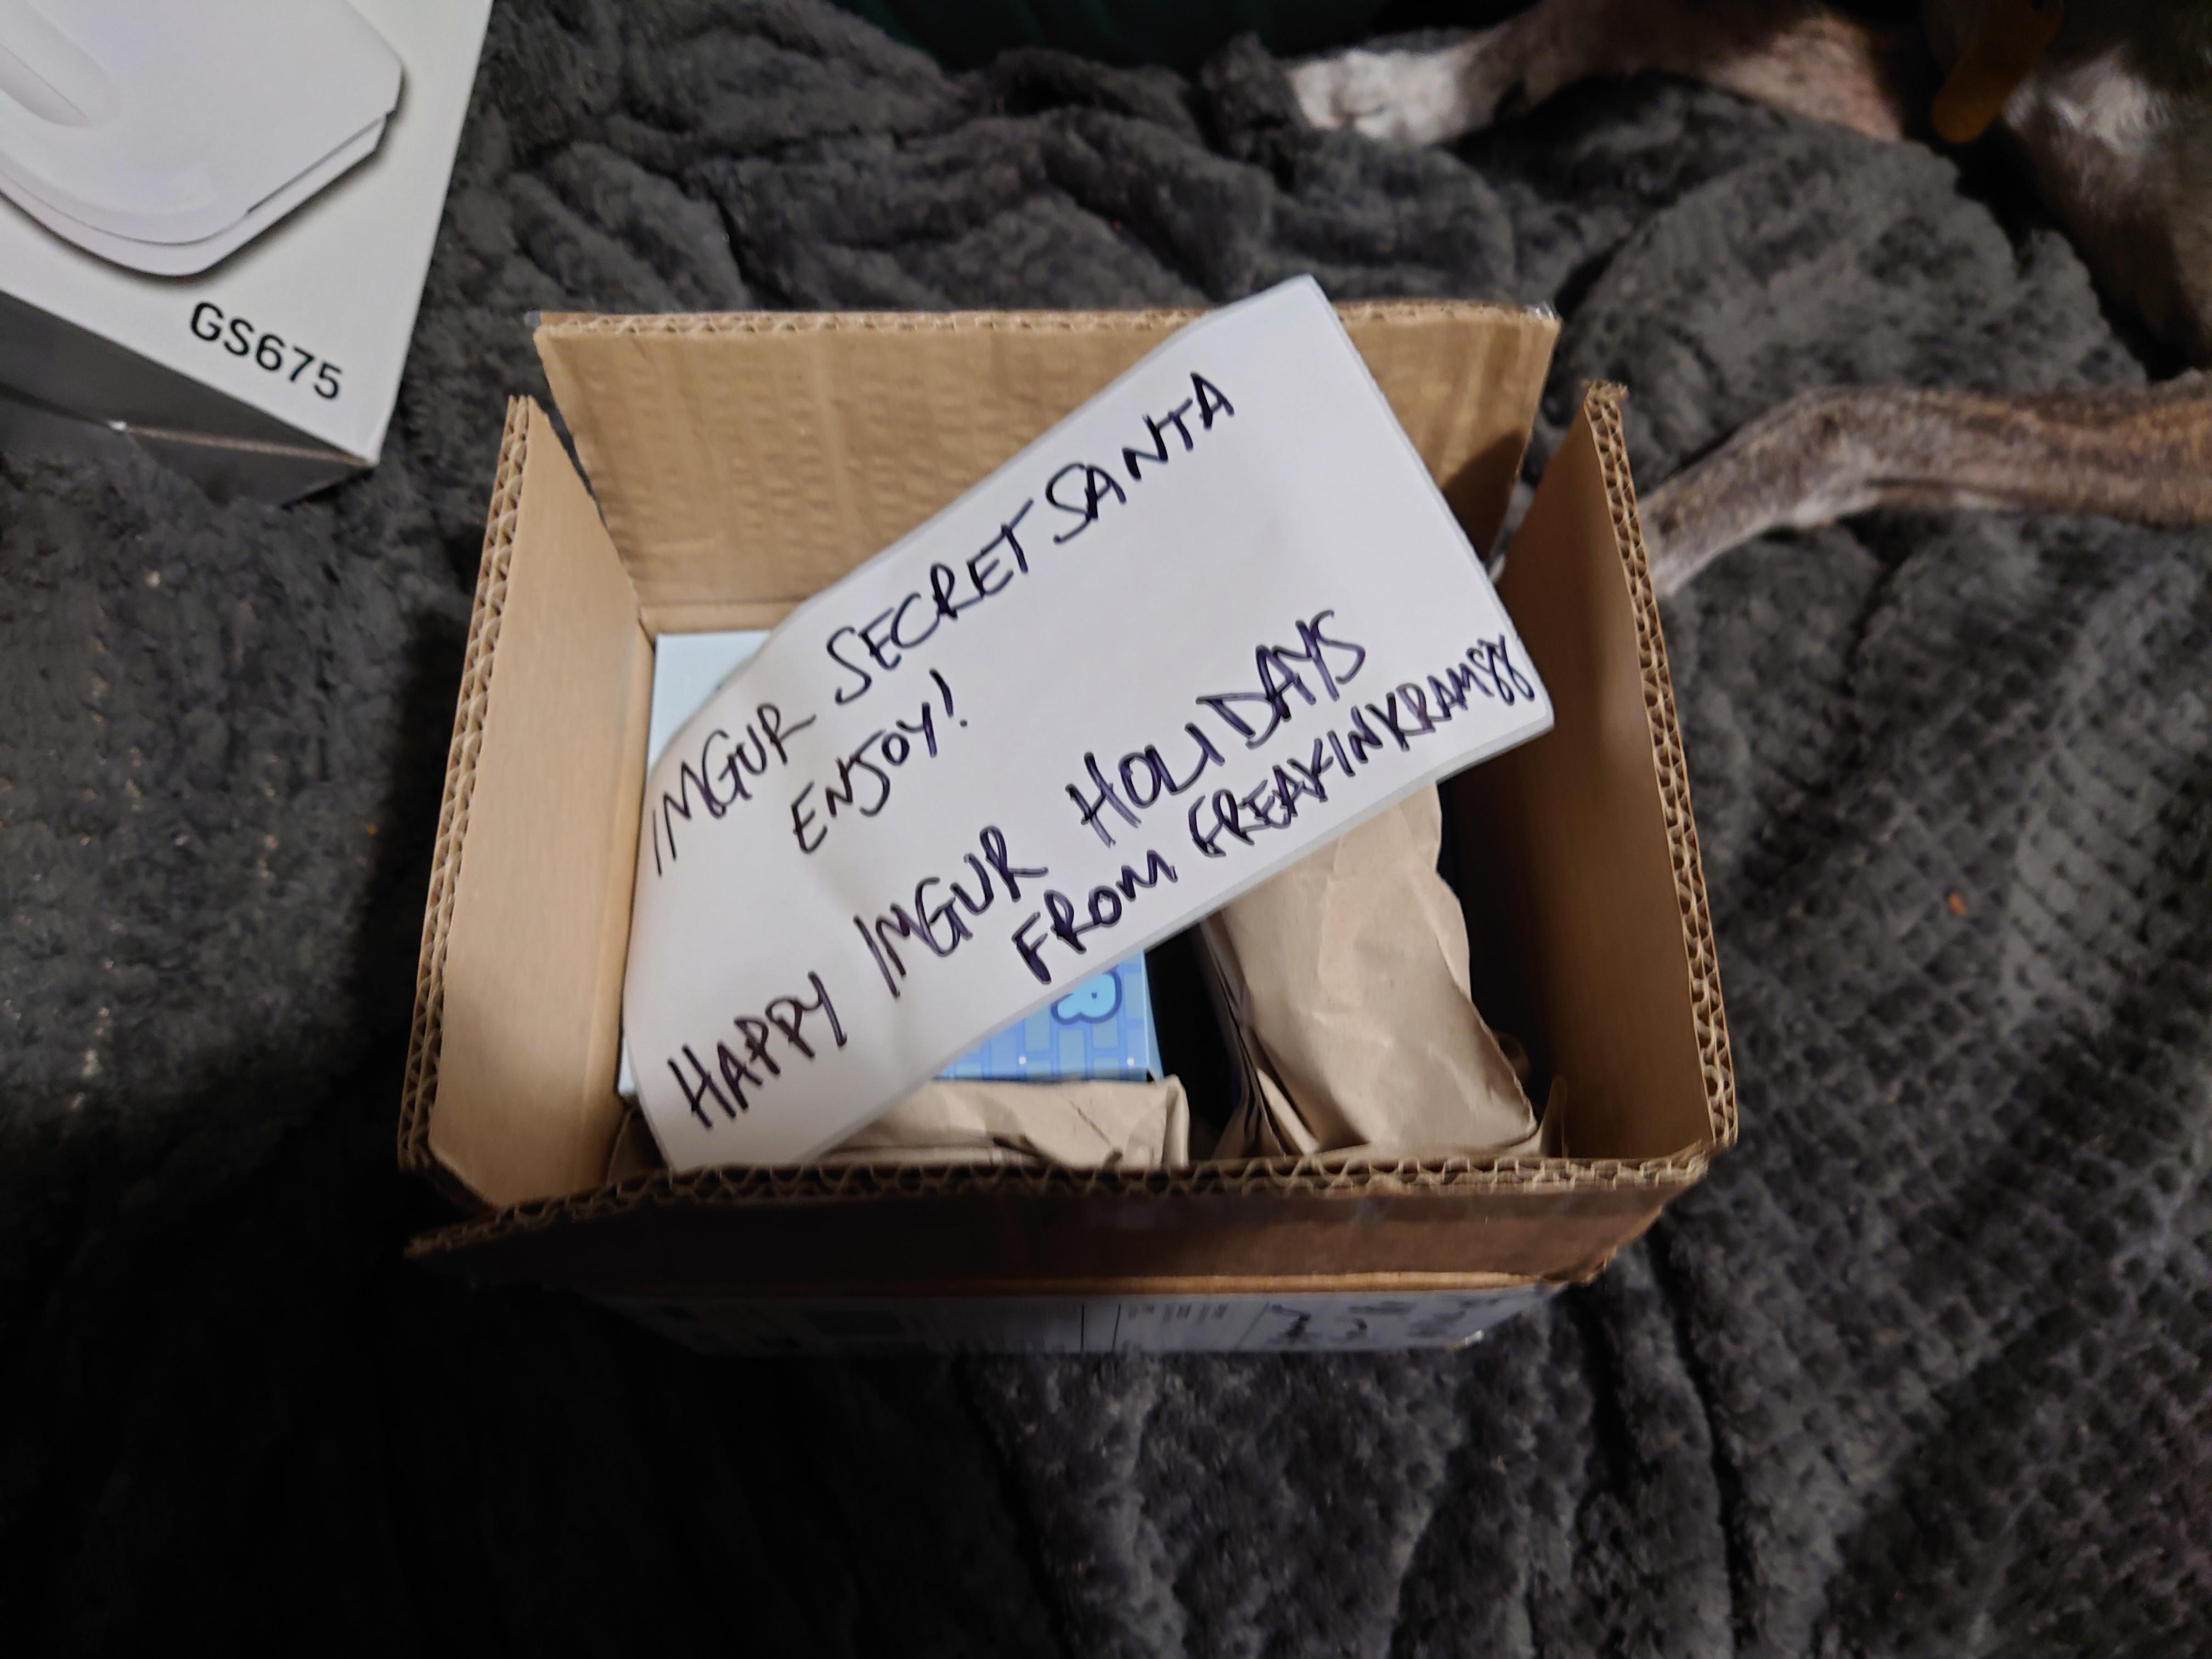 GS675
IMGUR SECRET SANTA
ENJOY!
HAPPY IMGUR HOLIDAYS
FROM FREAKINKRAM88